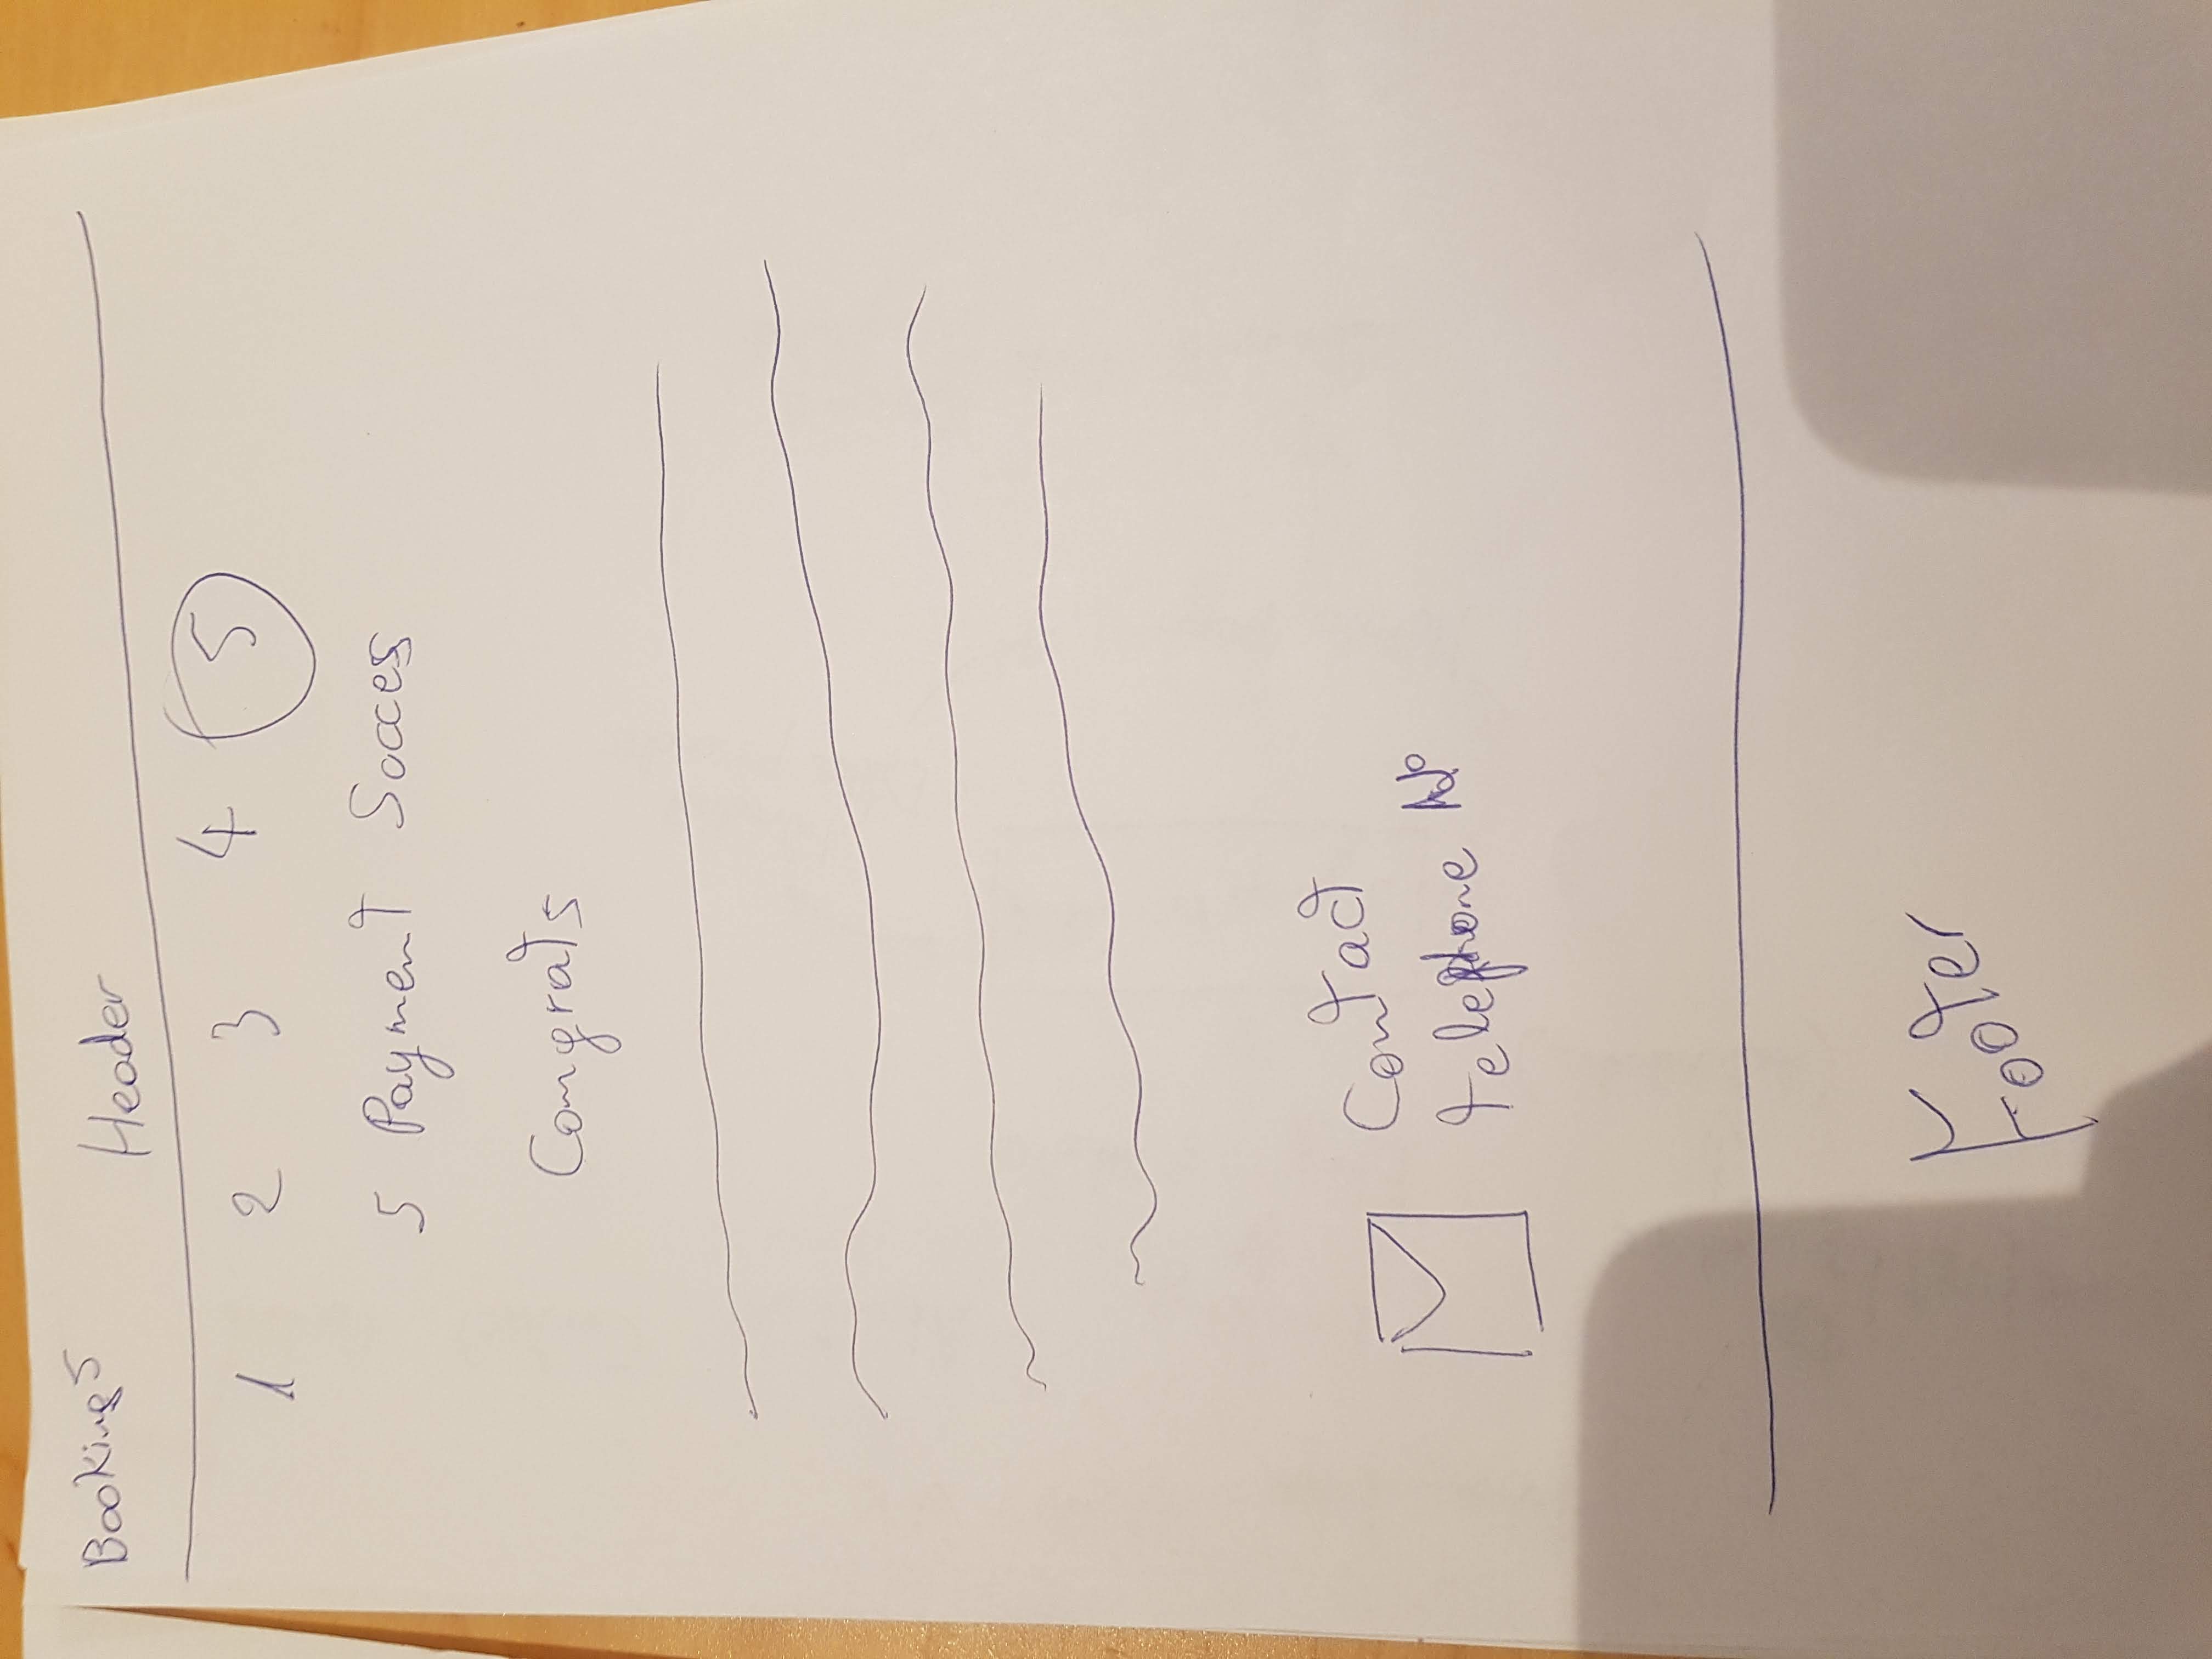 Booking 5 Header
1 2 3 4 5
5 Payment Socces
Congrats
Contact
Telephone N°
Footer